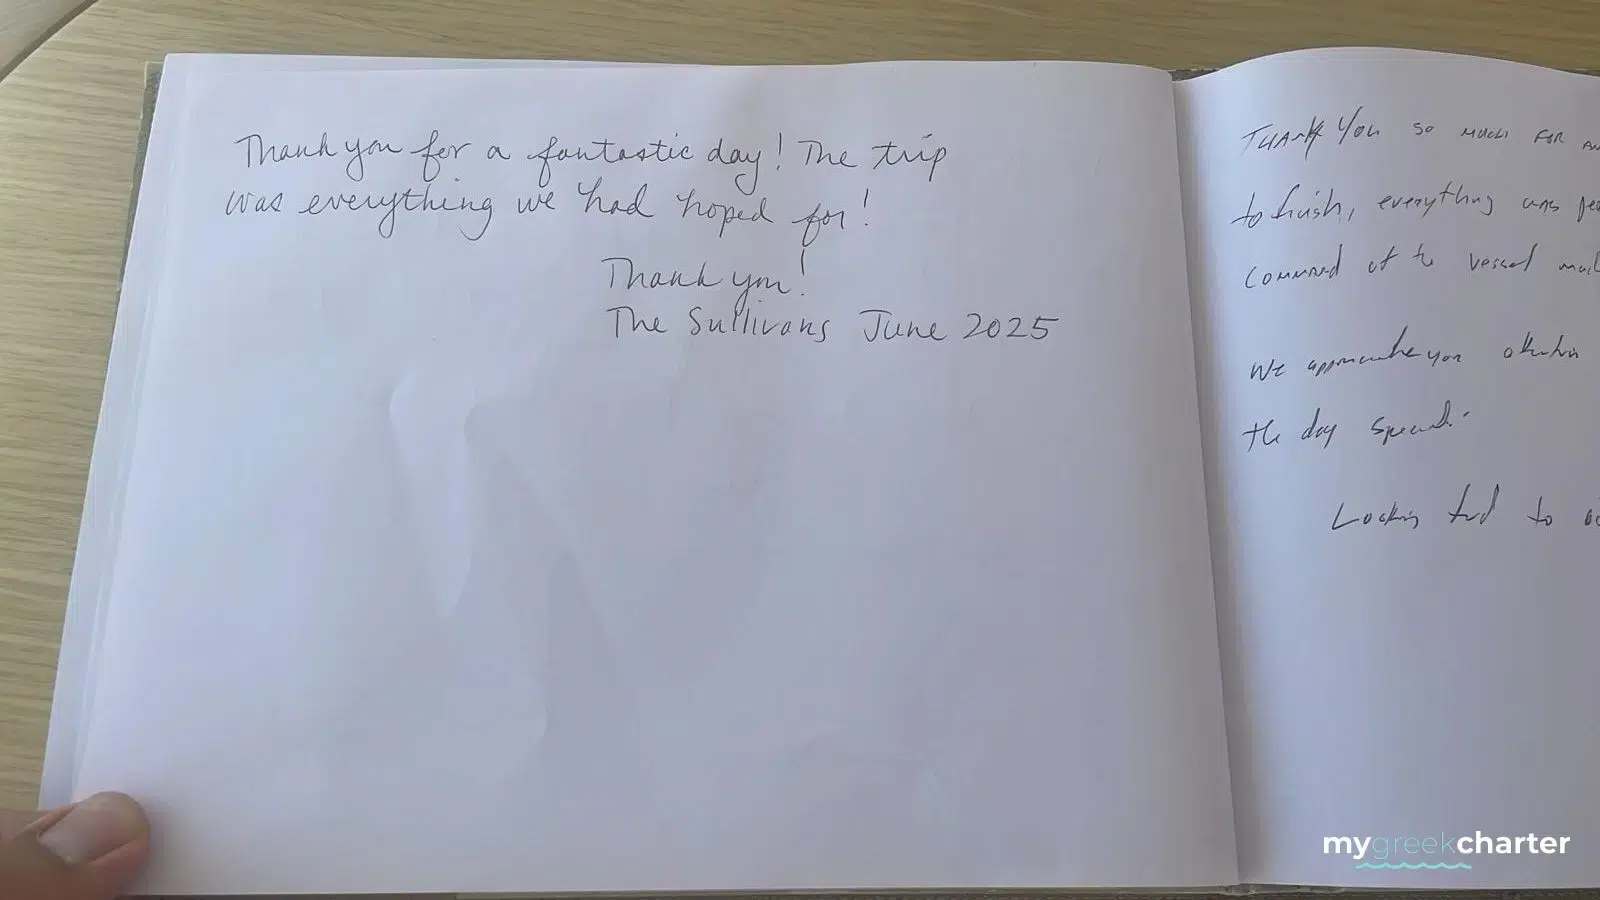 Thank you for a fantastic day! The trip
was everything we had hoped for!
Thank you!
The Sullivans June 2025
THANK YOU so much FOR
to finish, everything was
command of the vessel
We appreciate your attention
the day special.
Looking fwd to
mygreekcharter